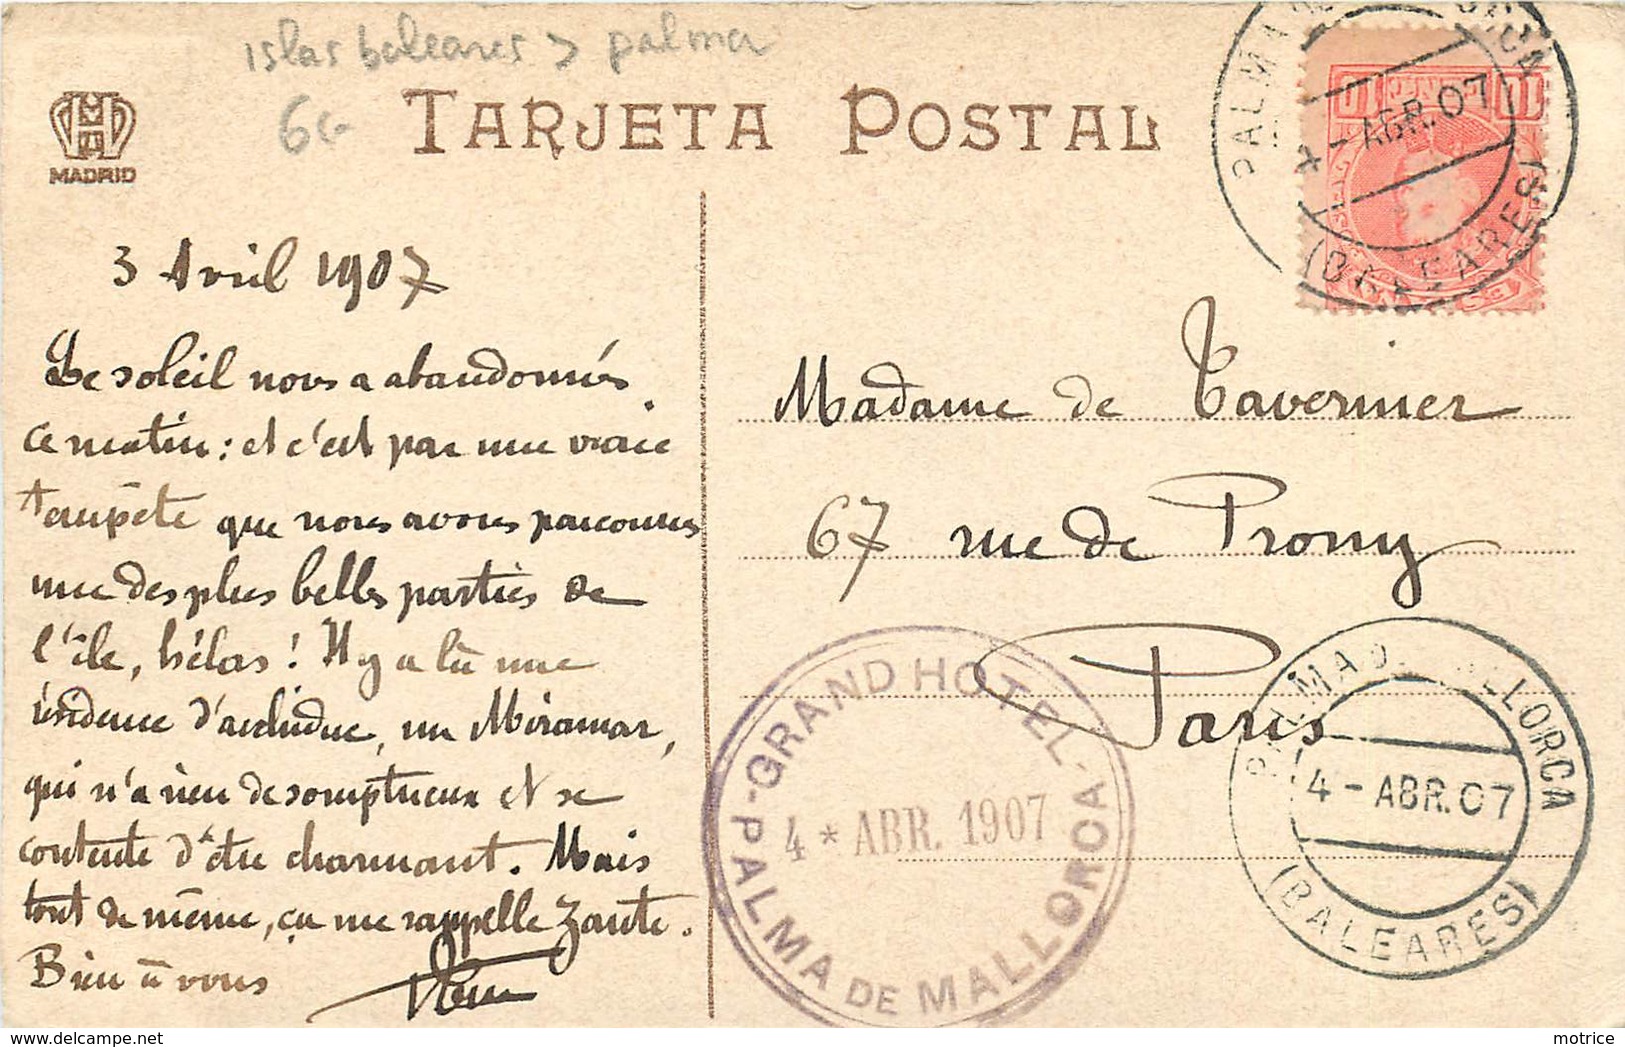 islas baleares > palma
6€
HM
MADRID
TARJETA POSTAL
PALMA
(BALEARES)
4 - ABR. 07
10 10
3 Avril 1907
Le soleil nous a abandonnés
ce matin : et c'est par une vraie
tempête que nous avons parcouru
une des plus belles parties de
l'île, hélas ! Il y a là une
résidence d'archiduc, un Miramar,
qui n'a rien de somptueux et se
contente d'être charmant. Mais
tout de même, ça me rappelle Zante.
Bien à vous
Madame de Tavernier
67 rue de Prony
Paris
- GRAND HOTEL -
4 * ABR. 1907
PALMA DE MALLORCA
PALMA DE MALLORCA
4 - ABR. 07
(BALEARES)
motrice